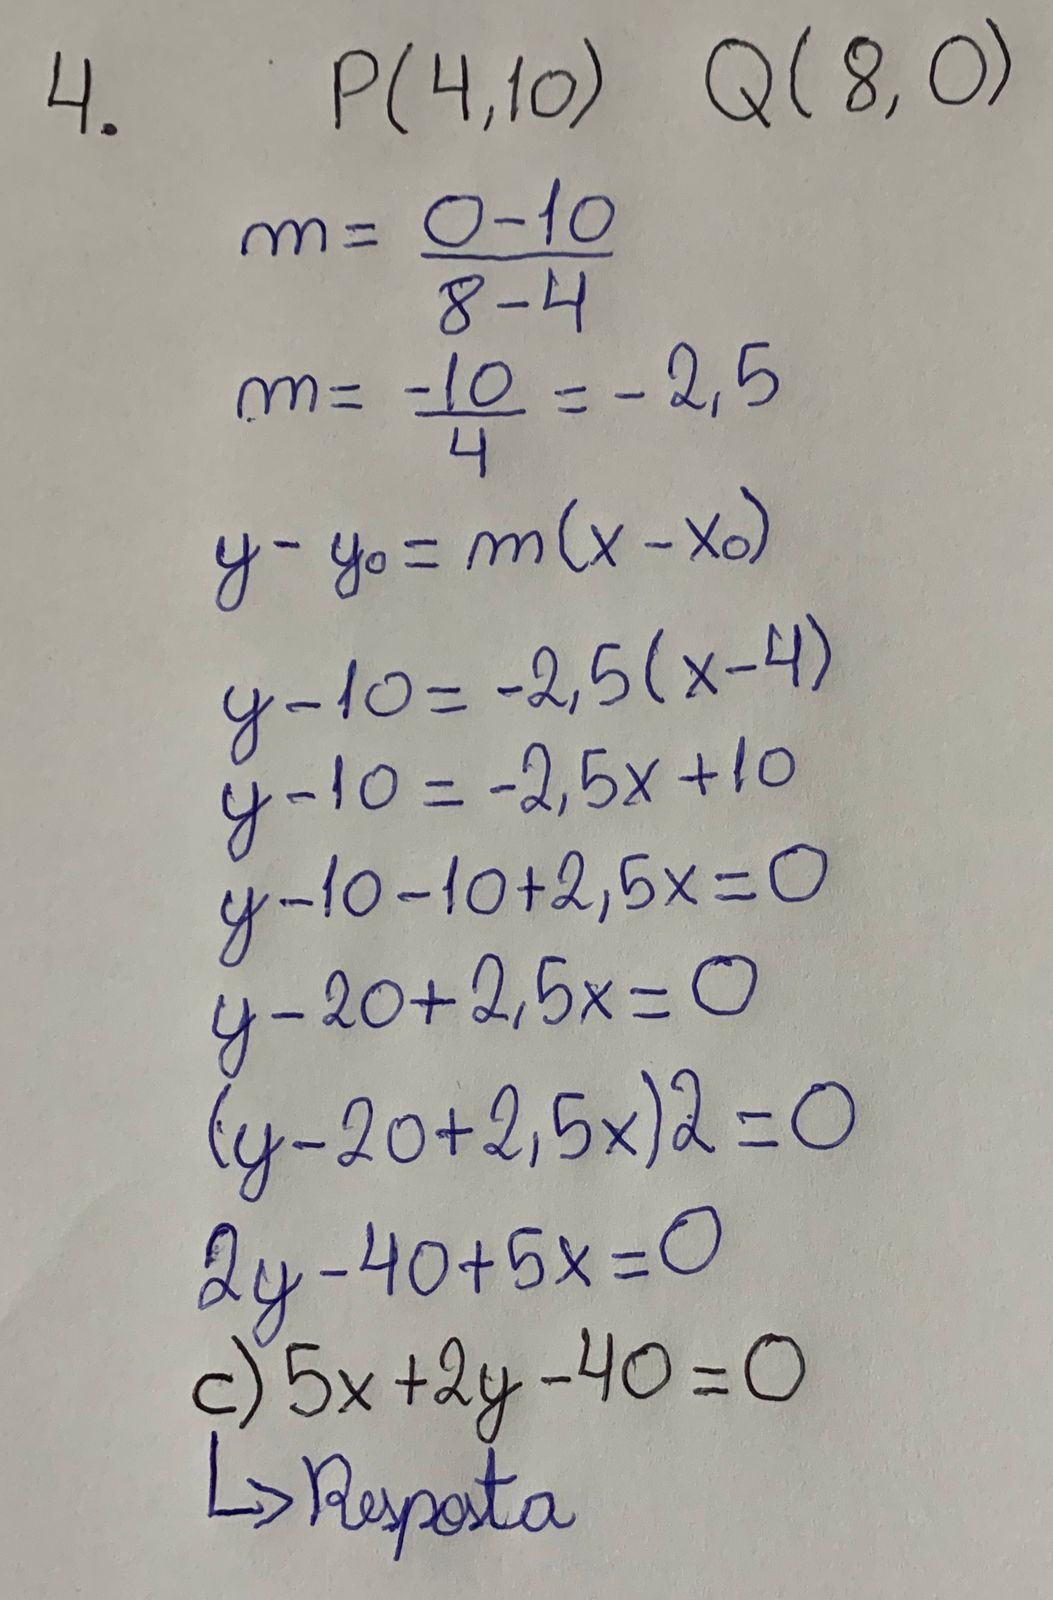 4. P(4,10) Q(8,0)
m = 0-10/8-4
m = -10/4 = -2,5
y - y₀ = m(x - x₀)
y - 10 = -2,5(x-4)
y - 10 = -2,5x + 10
y - 10 - 10 + 2,5x = 0
y - 20 + 2,5x = 0
(y - 20 + 2,5x)2 = 0
2y - 40 + 5x = 0
c) 5x + 2y - 40 = 0
↳ Resposta